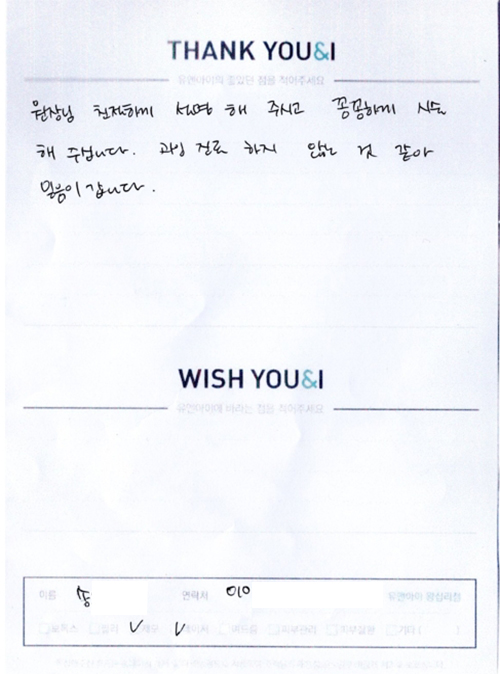 THANK YOU&I
유앤아이의 좋았던 점을 적어주세요
원장님 친절하게 설명 해 주시고 꼼꼼하게 시술
해 주십니다. 과잉 진료 하지 않는 것 같아
믿음이 갑니다.
WISH YOU&I
유앤아이에 바라는 점을 적어주세요
이름 송 연락처 010 유앤아이 왕십리점
보톡스 필러 제모 레이저 여드름 피부관리 기타 ( )